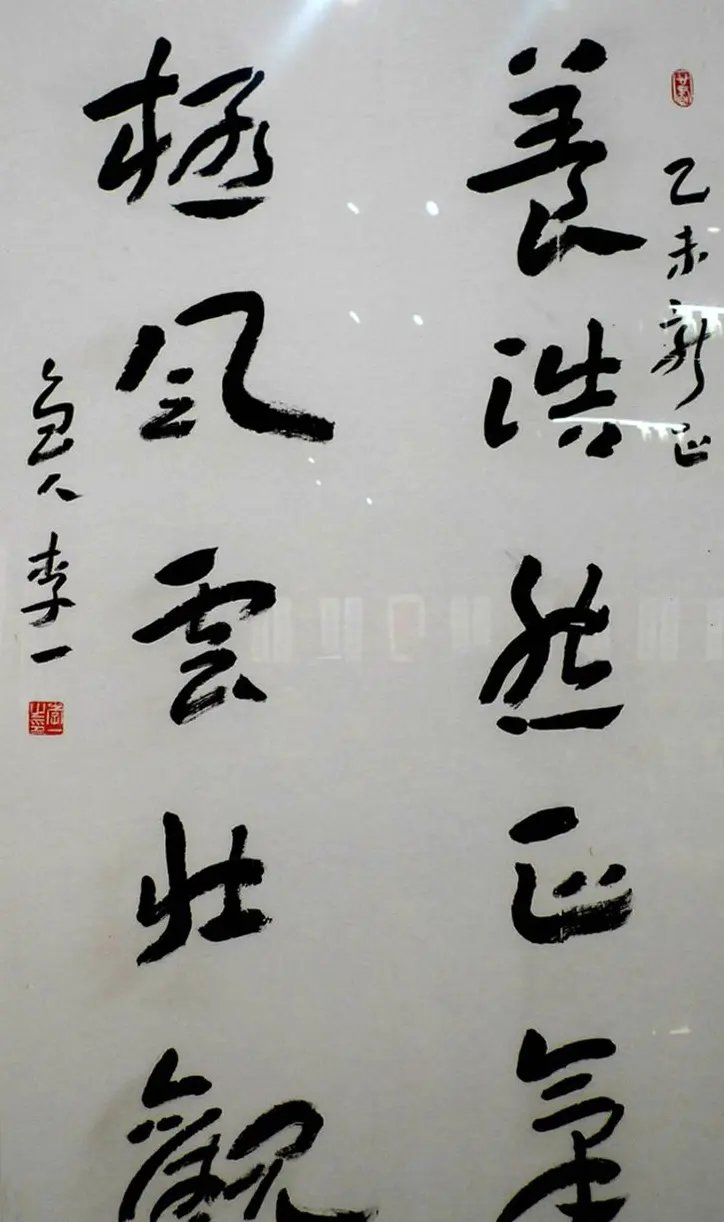 乙未新正
養浩然正氣
極風雲壯觀
魚人李一